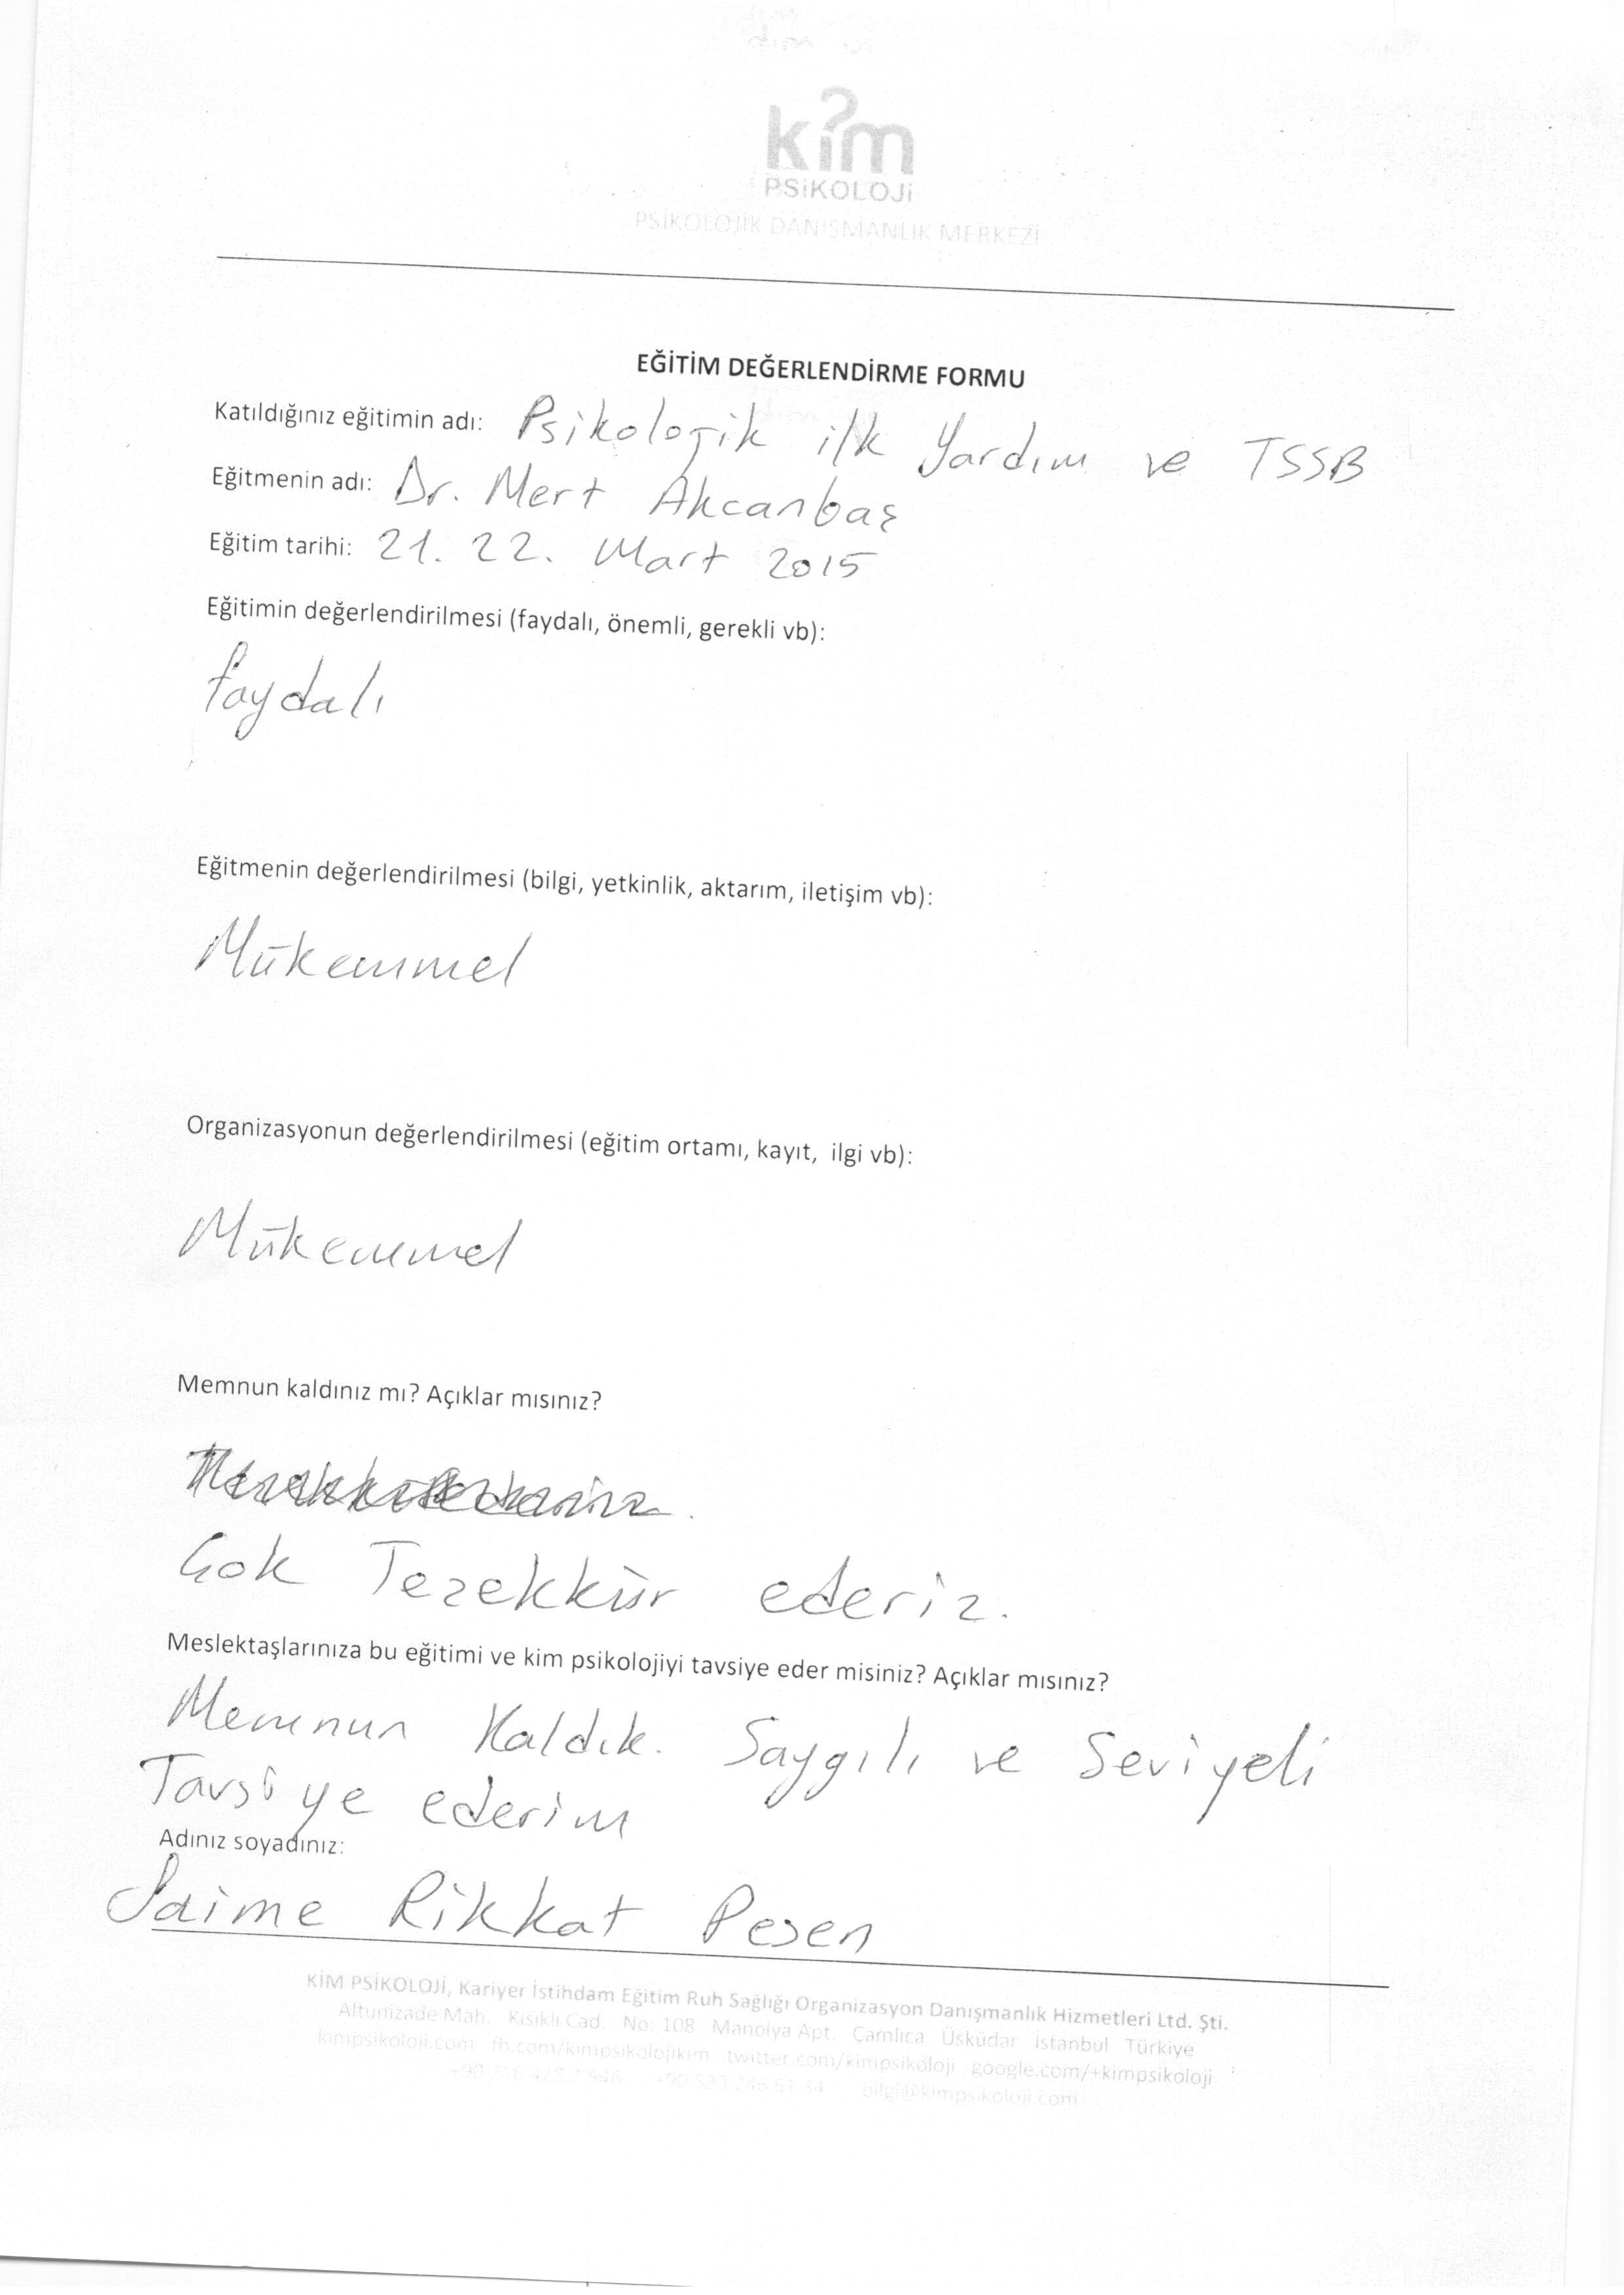 kim
PSiKOLOJi
PSİKOLOJİK DANIŞMANLIK MERKEZİ
EĞİTİM DEĞERLENDİRME FORMU
Katıldığınız eğitimin adı: Psikolojik ilk Yardım ve TSSB
Eğitmenin adı: Dr. Mert Akcanbaş
Eğitim tarihi: 21. 22. Mart 2015
Eğitimin değerlendirilmesi (faydalı, önemli, gerekli vb):
faydalı
Eğitmenin değerlendirilmesi (bilgi, yetkinlik, aktarım, iletişim vb):
Mükemmel
Organizasyonun değerlendirilmesi (eğitim ortamı, kayıt, ilgi vb):
Mükemmel
Memnun kaldınız mı? Açıklar mısınız?
Çok Teşekkür ederiz.
Meslektaşlarınıza bu eğitimi ve kim psikolojiyi tavsiye eder misiniz? Açıklar mısınız?
Memnun Kaldık. Saygılı ve Seviyeli
Tavsiye ederim
Adınız soyadınız:
Saime Rikkat Pesen
KİM PSİKOLOJİ, Kariyer İstihdam Eğitim Ruh Sağlığı Organizasyon Danışmanlık Hizmetleri Ltd. Şti.
Altunizade Mah. Kısıklı Cad. No: 108 Manolya Apt. Çamlıca Üsküdar İstanbul Türkiye
kimpsikoloji.com fb.com/kimpsikolojikim twitter.com/kimpsikoloji google.com/+kimpsikoloji
bilgi@kimpsikoloji.com